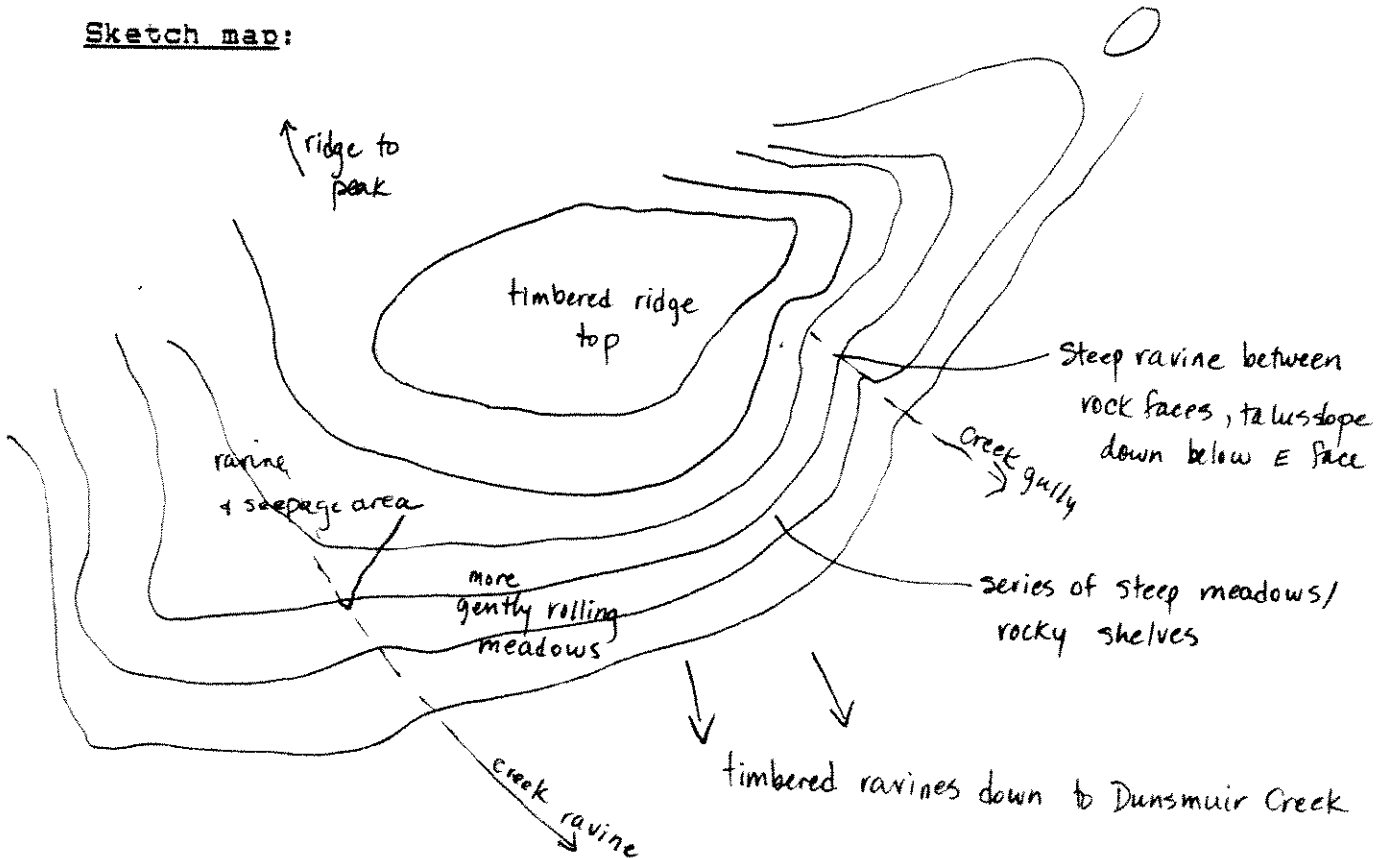 Sketch map:
ridge to
peak
timbered ridge
top
Steep ravine between
rock faces, talus slope
down below E face
creek gully
ravine
& seepage area
more
gently rolling
meadows
series of steep meadows/
rocky shelves
timbered ravines down to Dunsmuir Creek
creek ravine